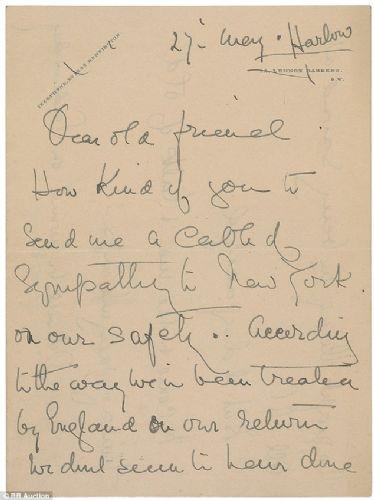 27th May. Harlow
LENNOX GARDENS,
S.W.
TELEPHONE KENSINGTON.
Dear old friend
How kind of you to
send me a cable of
sympathy to New York
on our safety .. According
to the way we've been treated
by England on our return
we didn't seem to have done
© RR Auction